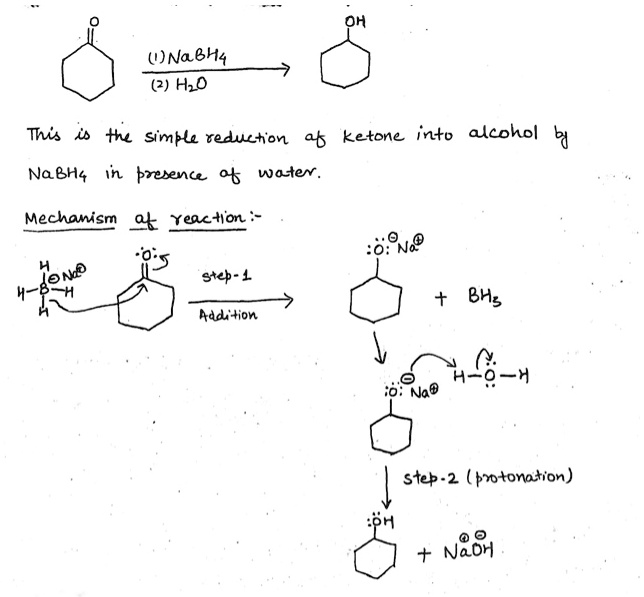 O
OH
(1) NaBH4
(2) H2O
This is the simple reduction of ketone into alcohol by
NaBH4 in presence of water.
Mechanism of reaction :-
H
H-B-H
H
⊖ Na⊕
:O:
step-1
Addition
:O:⊖ Na⊕
+ BH3
:O:⊖ Na⊕
H-O-H
step-2 (protonation)
:OH
+ Na⊕OH⊖